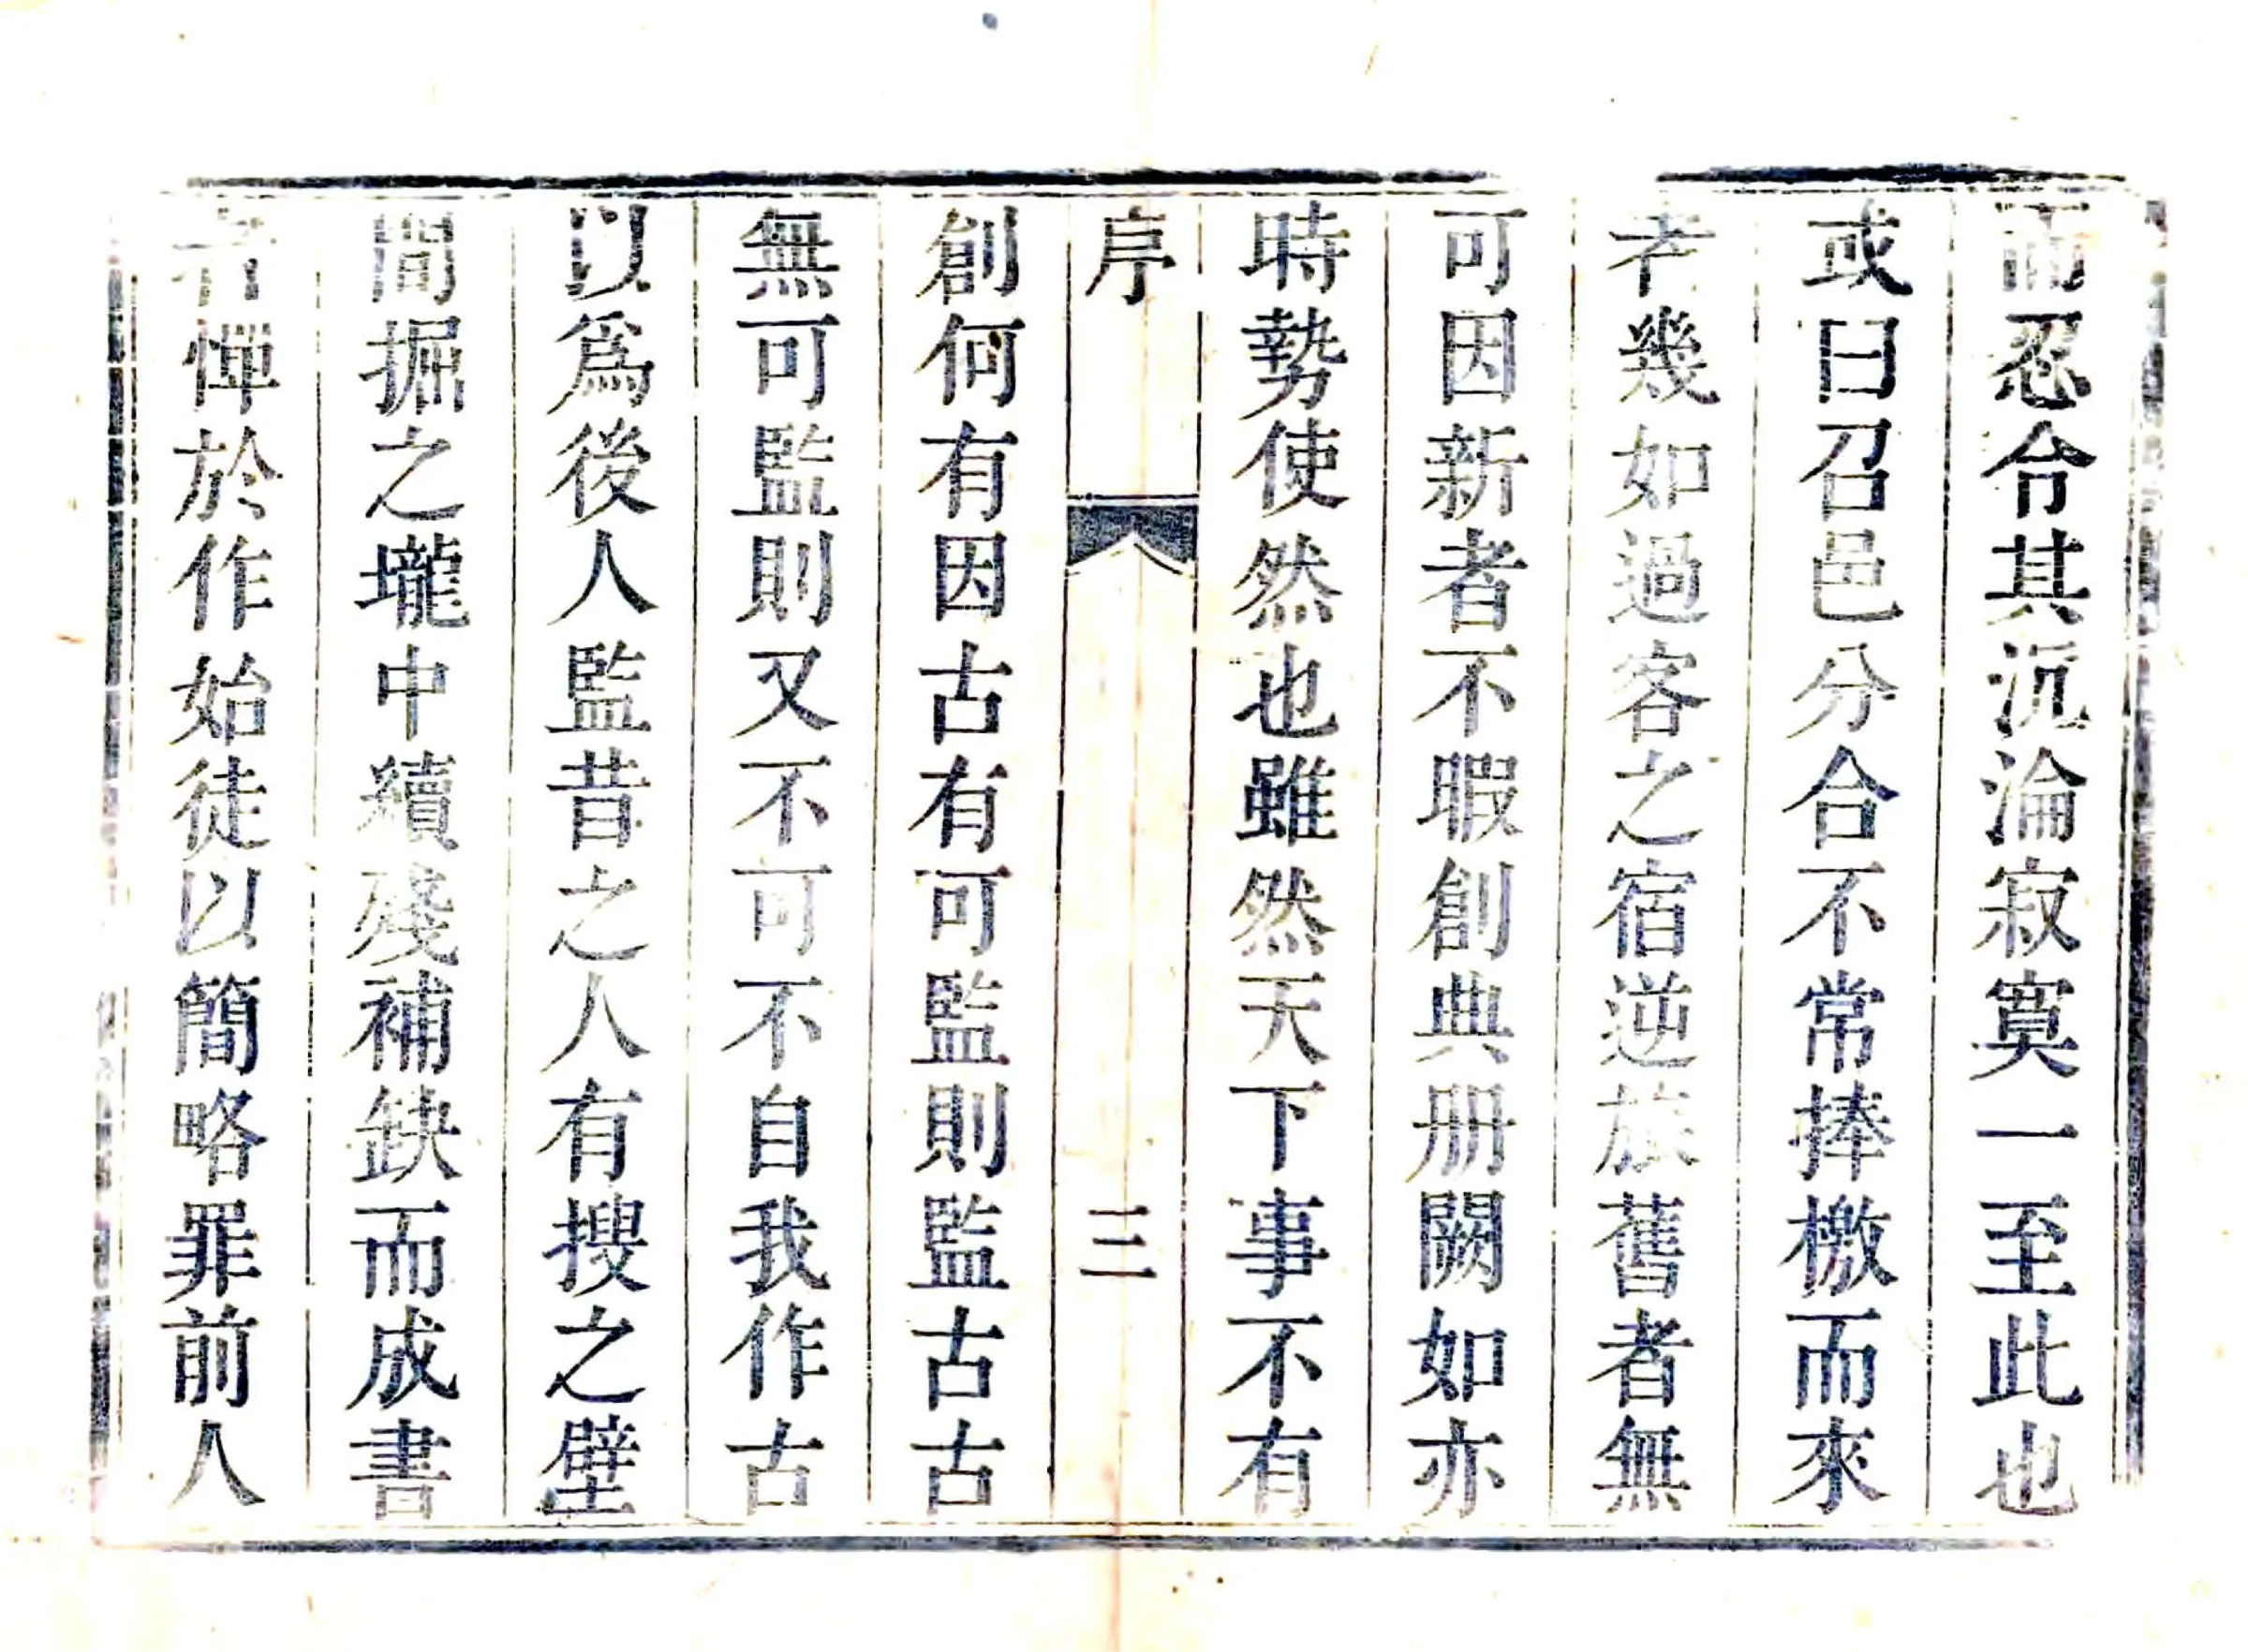 而忍令其沉淪寂寞一至此也
或曰召邑分合不常捧檄而來
者幾如過客之宿逆旅舊者無
可因新者不暇創典册闕如亦
時勢使然也雖然天下事不有
序 三
創何有因古有可監則監古古
無可監則又不可不自我作古
以爲後人監昔之人有搜之壁
間掘之壠中續殘補缺而成書
者憚於作始徒以簡略罪前人